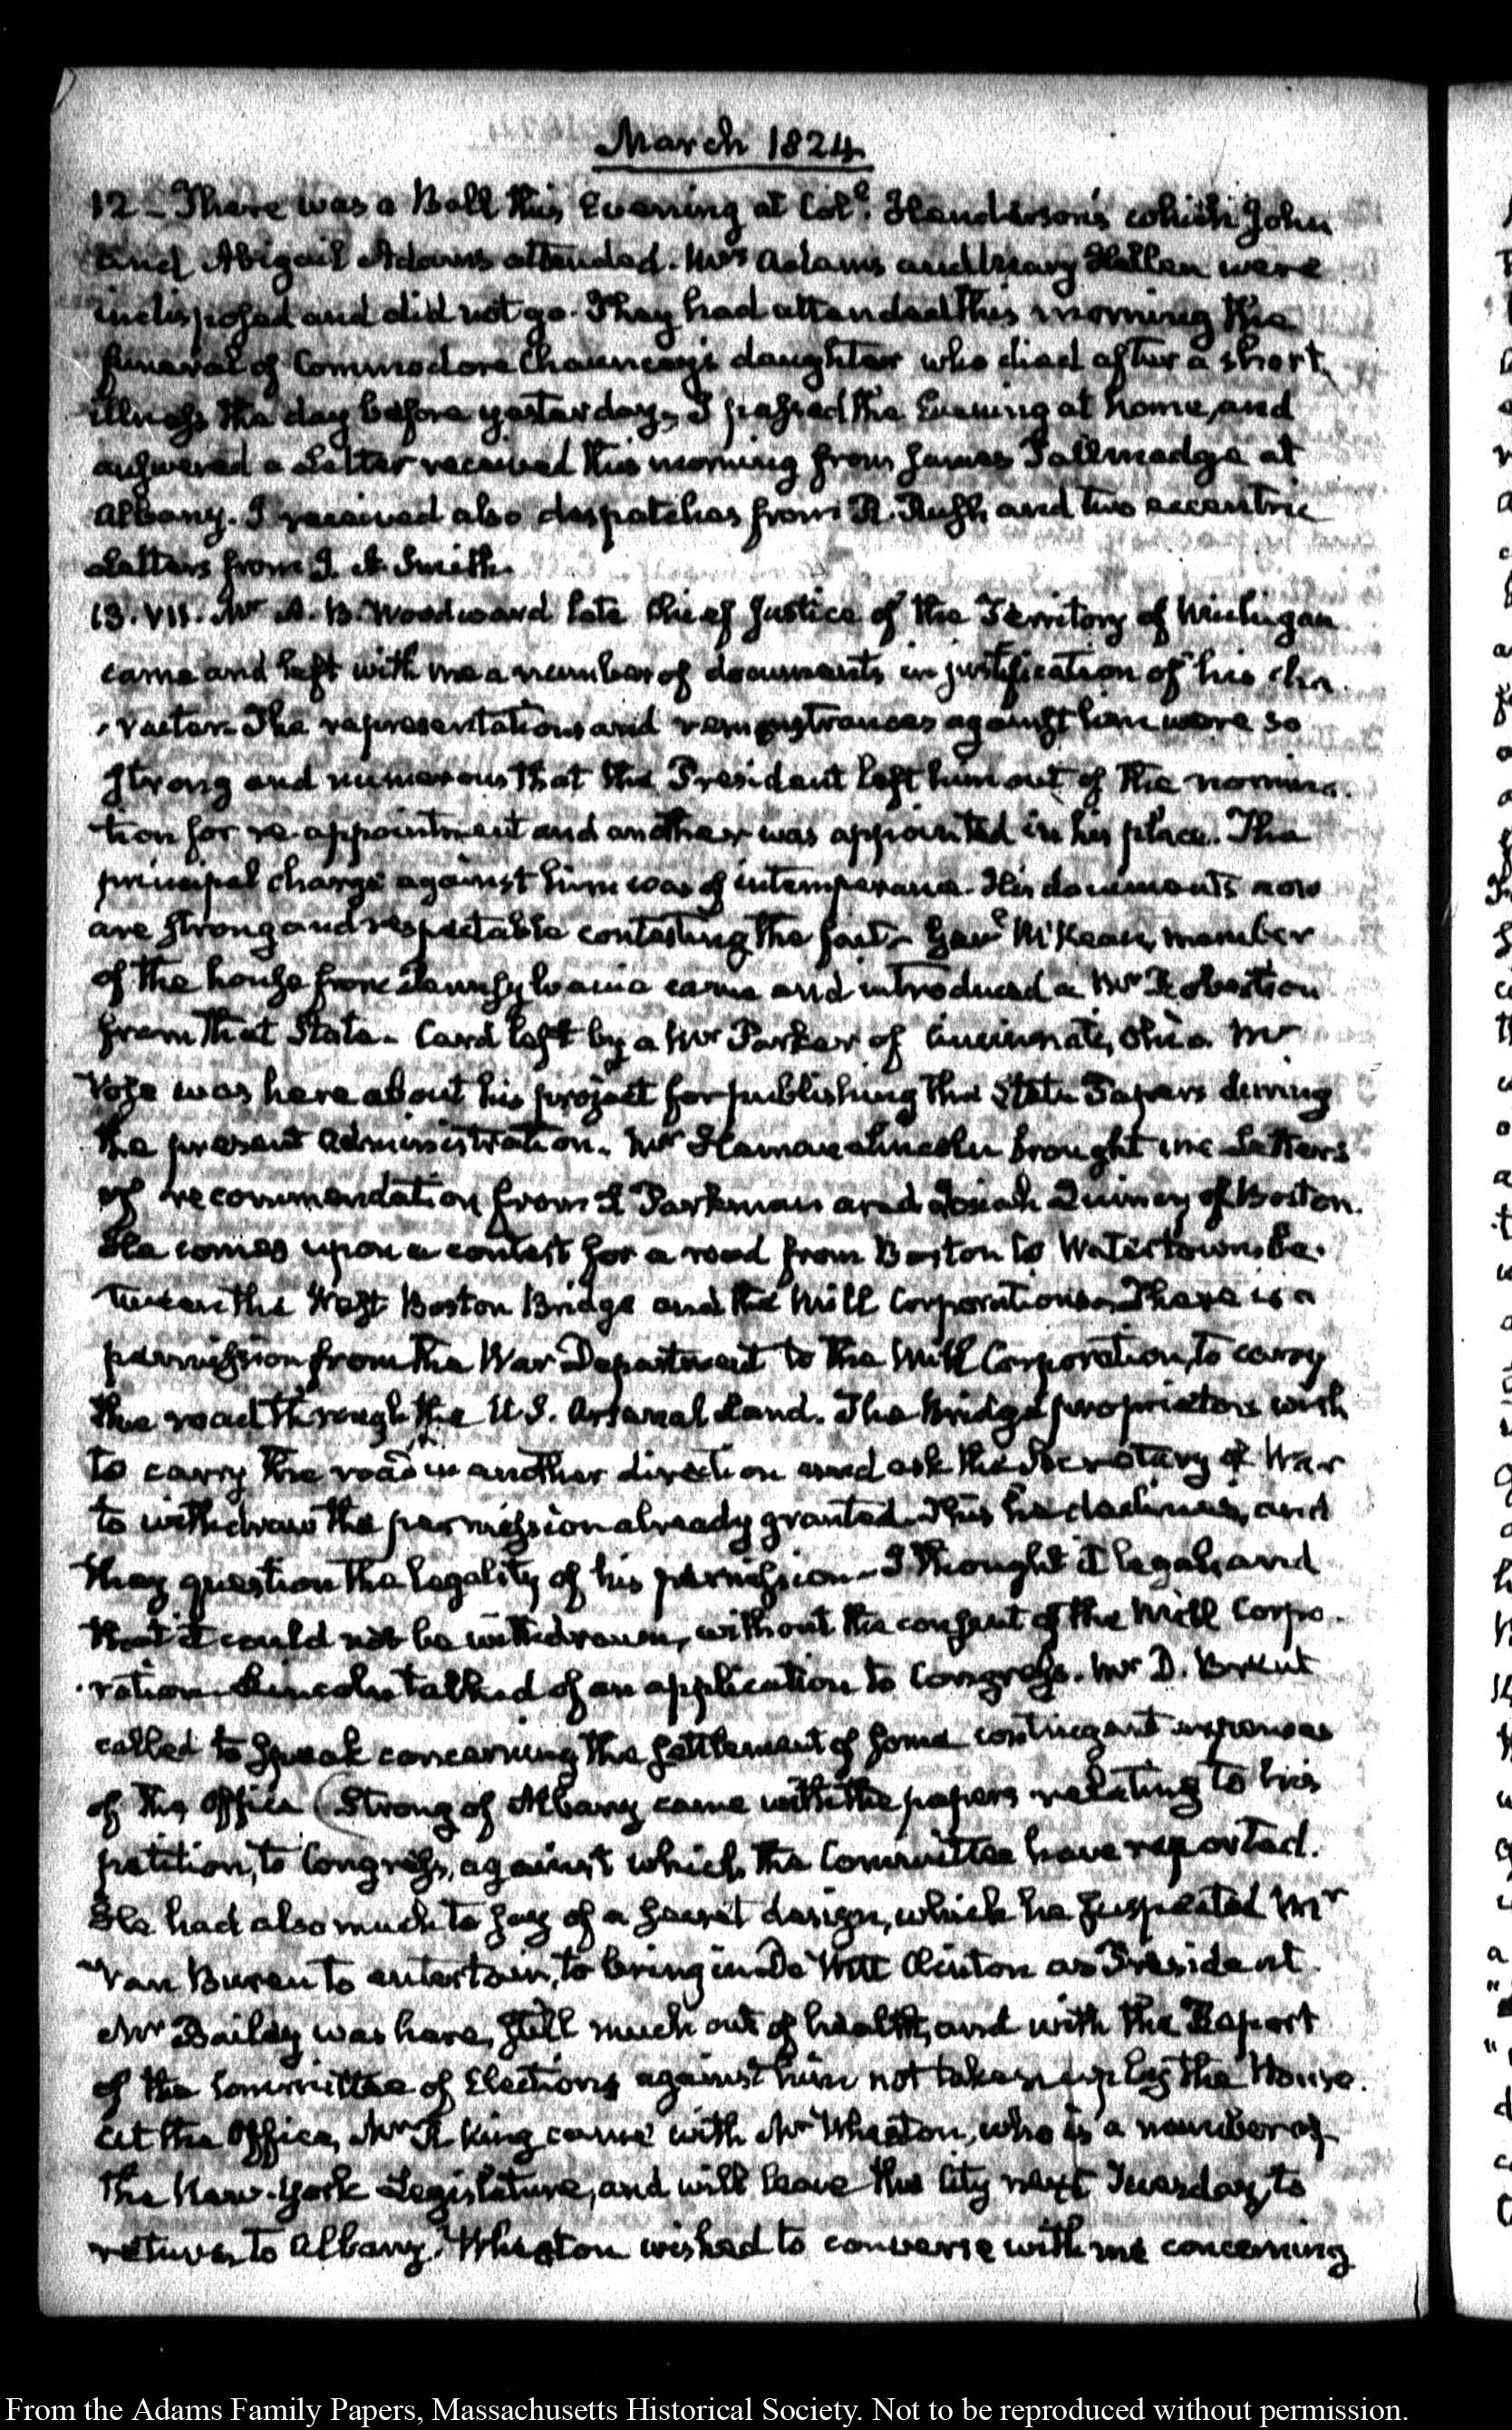 March 1824
12 - There was a Ball this Evening at Col.l Henderson's which John
and Abigail Adams attended. Mrs Adams and Mary Hellen were
indisposed and did not go. They had attended this morning the
funeral of Commodore Chauncey's daughter who died after a short
illness the day before yesterday. I passed the Evening at home, and
answered a Letter received this morning from James Tallmadge at
Albany. I received also despatches from R. Rush, and two eccentric
Letters from J. A. Smith.
13. VII. Mr A. B. Woodward late Chief Justice of the Territory of Michigan
came and left with me a number of documents in justification of his cha
racter. The representations and remonstrances against him were so
strong and numerous that the President left him out of the nomina
tion for re-appointment and another was appointed in his place. The
principal charge against him was of intemperance. His documents now
are strong and respectable contesting the fact. - Genl McKean, member
of the house from Pennsylvania came and introduced a Mr Robertson
from that State. - Card left by a Mr Parker of Cincinnati, Ohio. Mr
Vose was here about his project for publishing the State Papers during
the present Administration. Mr Heman Lincoln brought me Letters
of recommendation from Parkman and Josiah Quincy of Boston.
He comes upon a contest for a road from Boston to Watertown be-
tween the West Boston Bridge and the Mill Corporations. There is a
permission from the War Department to the Mill Corporation, to carry
the road through the U.S. Arsenal Land. The Bridge proprietors wish
to carry the road in another direction and ask the Secretary of War
to withdraw the permission already granted. This he declines, and
they question the legality of his permission - I thought it legal, and
that it could not be withdrawn, without the consent of the Mill Corpo-
ration - Lincoln talked of an application to Congress. Mr D. Brent
called to speak concerning the settlement of some contingent expenses
of the Office (Strong of Albany came with the papers relating to his
petition, to Congress, against which the Committee have reported.
He had also much to say of a secret design, which he suspected Mr
Van Buren to entertain, to bring in De Witt Clinton as President.
Mr Bailey was here, still much out of health, and with the Report
of the Committee of Elections against him not taken up by the House.
At the Office, Mr R King came with Mr Wheaton, who is a member of
the New-York Legislature, and will leave this City next Tuesday, to
return to Albany. Wheaton wished to converse with me concerning
From the Adams Family Papers, Massachusetts Historical Society. Not to be reproduced without permission.